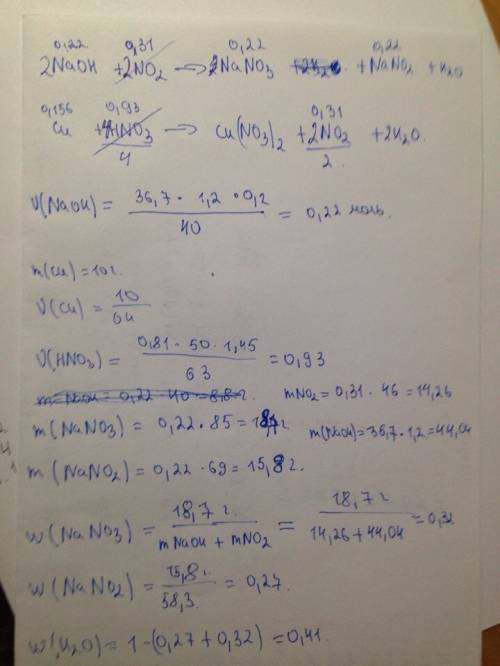 0,22 0,31 0,22 0,22
2NaOH + 2NO₂ → 2NaNO₃ + NaNO₂ + H₂O
0,156 0,93 0,31
Cu + 4HNO₃ → Cu(NO₃)₂ + 2NO₂ + 2H₂O
4 2
ν(NaOH) = 36,7 · 1,2 · 0,2 / 40 = 0,22 моль.
m(Cu) = 10 г.
ν(Cu) = 10 / 64
ν(HNO₃) = 0,81 · 50 · 1,45 / 63 = 0,93
m NaOH = 0,22 · 40 = 8,8 г.
mNO₂ = 0,31 · 46 = 14,26
m(NaNO₃) = 0,22 · 85 = 18,7 г
m(NaOH) = 36,7 · 1,2 = 44,04
m(NaNO₂) = 0,22 · 69 = 15,8 г.
w(NaNO₃) = 18,7 г. / mNaOH + mNO₂ = 18,7 г / 14,26 + 44,04 = 0,32
w(NaNO₂) = 15,8 г. / 58,3. = 0,27.
w(H₂O) = 1 - (0,27 + 0,32) = 0,41.